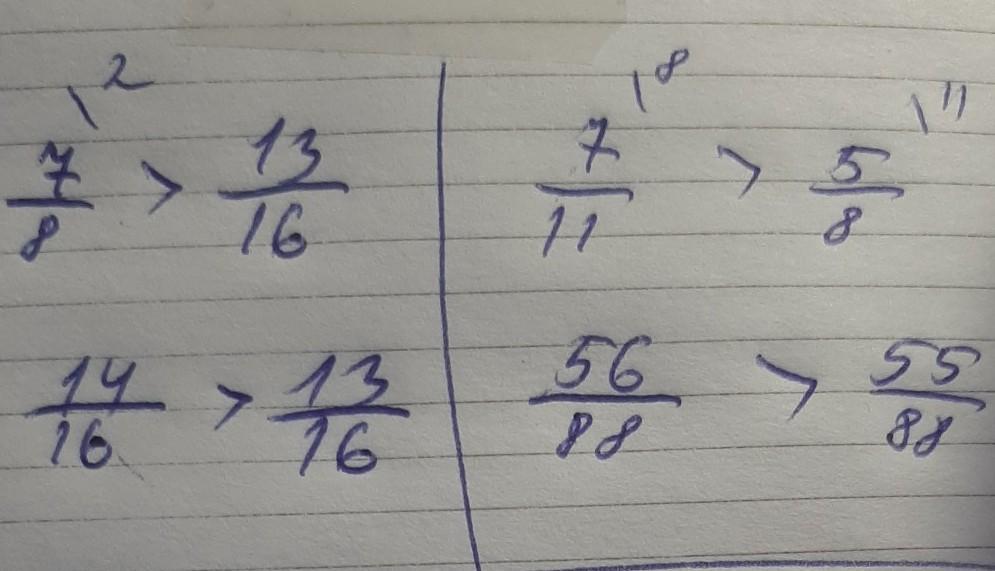 \2
7/8 > 13/16
14/16 > 13/16
\8 \11
7/11 > 5/8
56/88 > 55/88